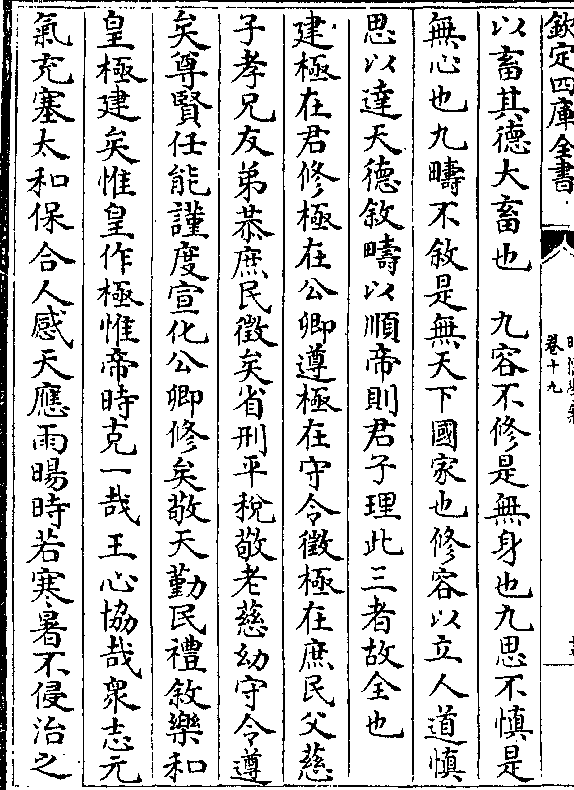 欽定四庫全書
卷十九
以畜其德大畜也　九容不修是無身也九思不慎是
無心也九疇不敘是無天下國家也修容以立人道慎
思以達天德敘疇以順帝則君子理此三者故全也
建極在君修極在公卿遵極在守令徵極在庶民父慈
子孝兄友弟恭庶民徵矣省刑平稅敬老慈幼守令遵
矣尊賢任能謹度宣化公卿修矣敬天勤民禮敘樂和
皇極建矣惟皇作極惟帝時克一哉王心協哉衆志元
氣充塞太和保合人感天應雨暘時若寒暑不侵治之